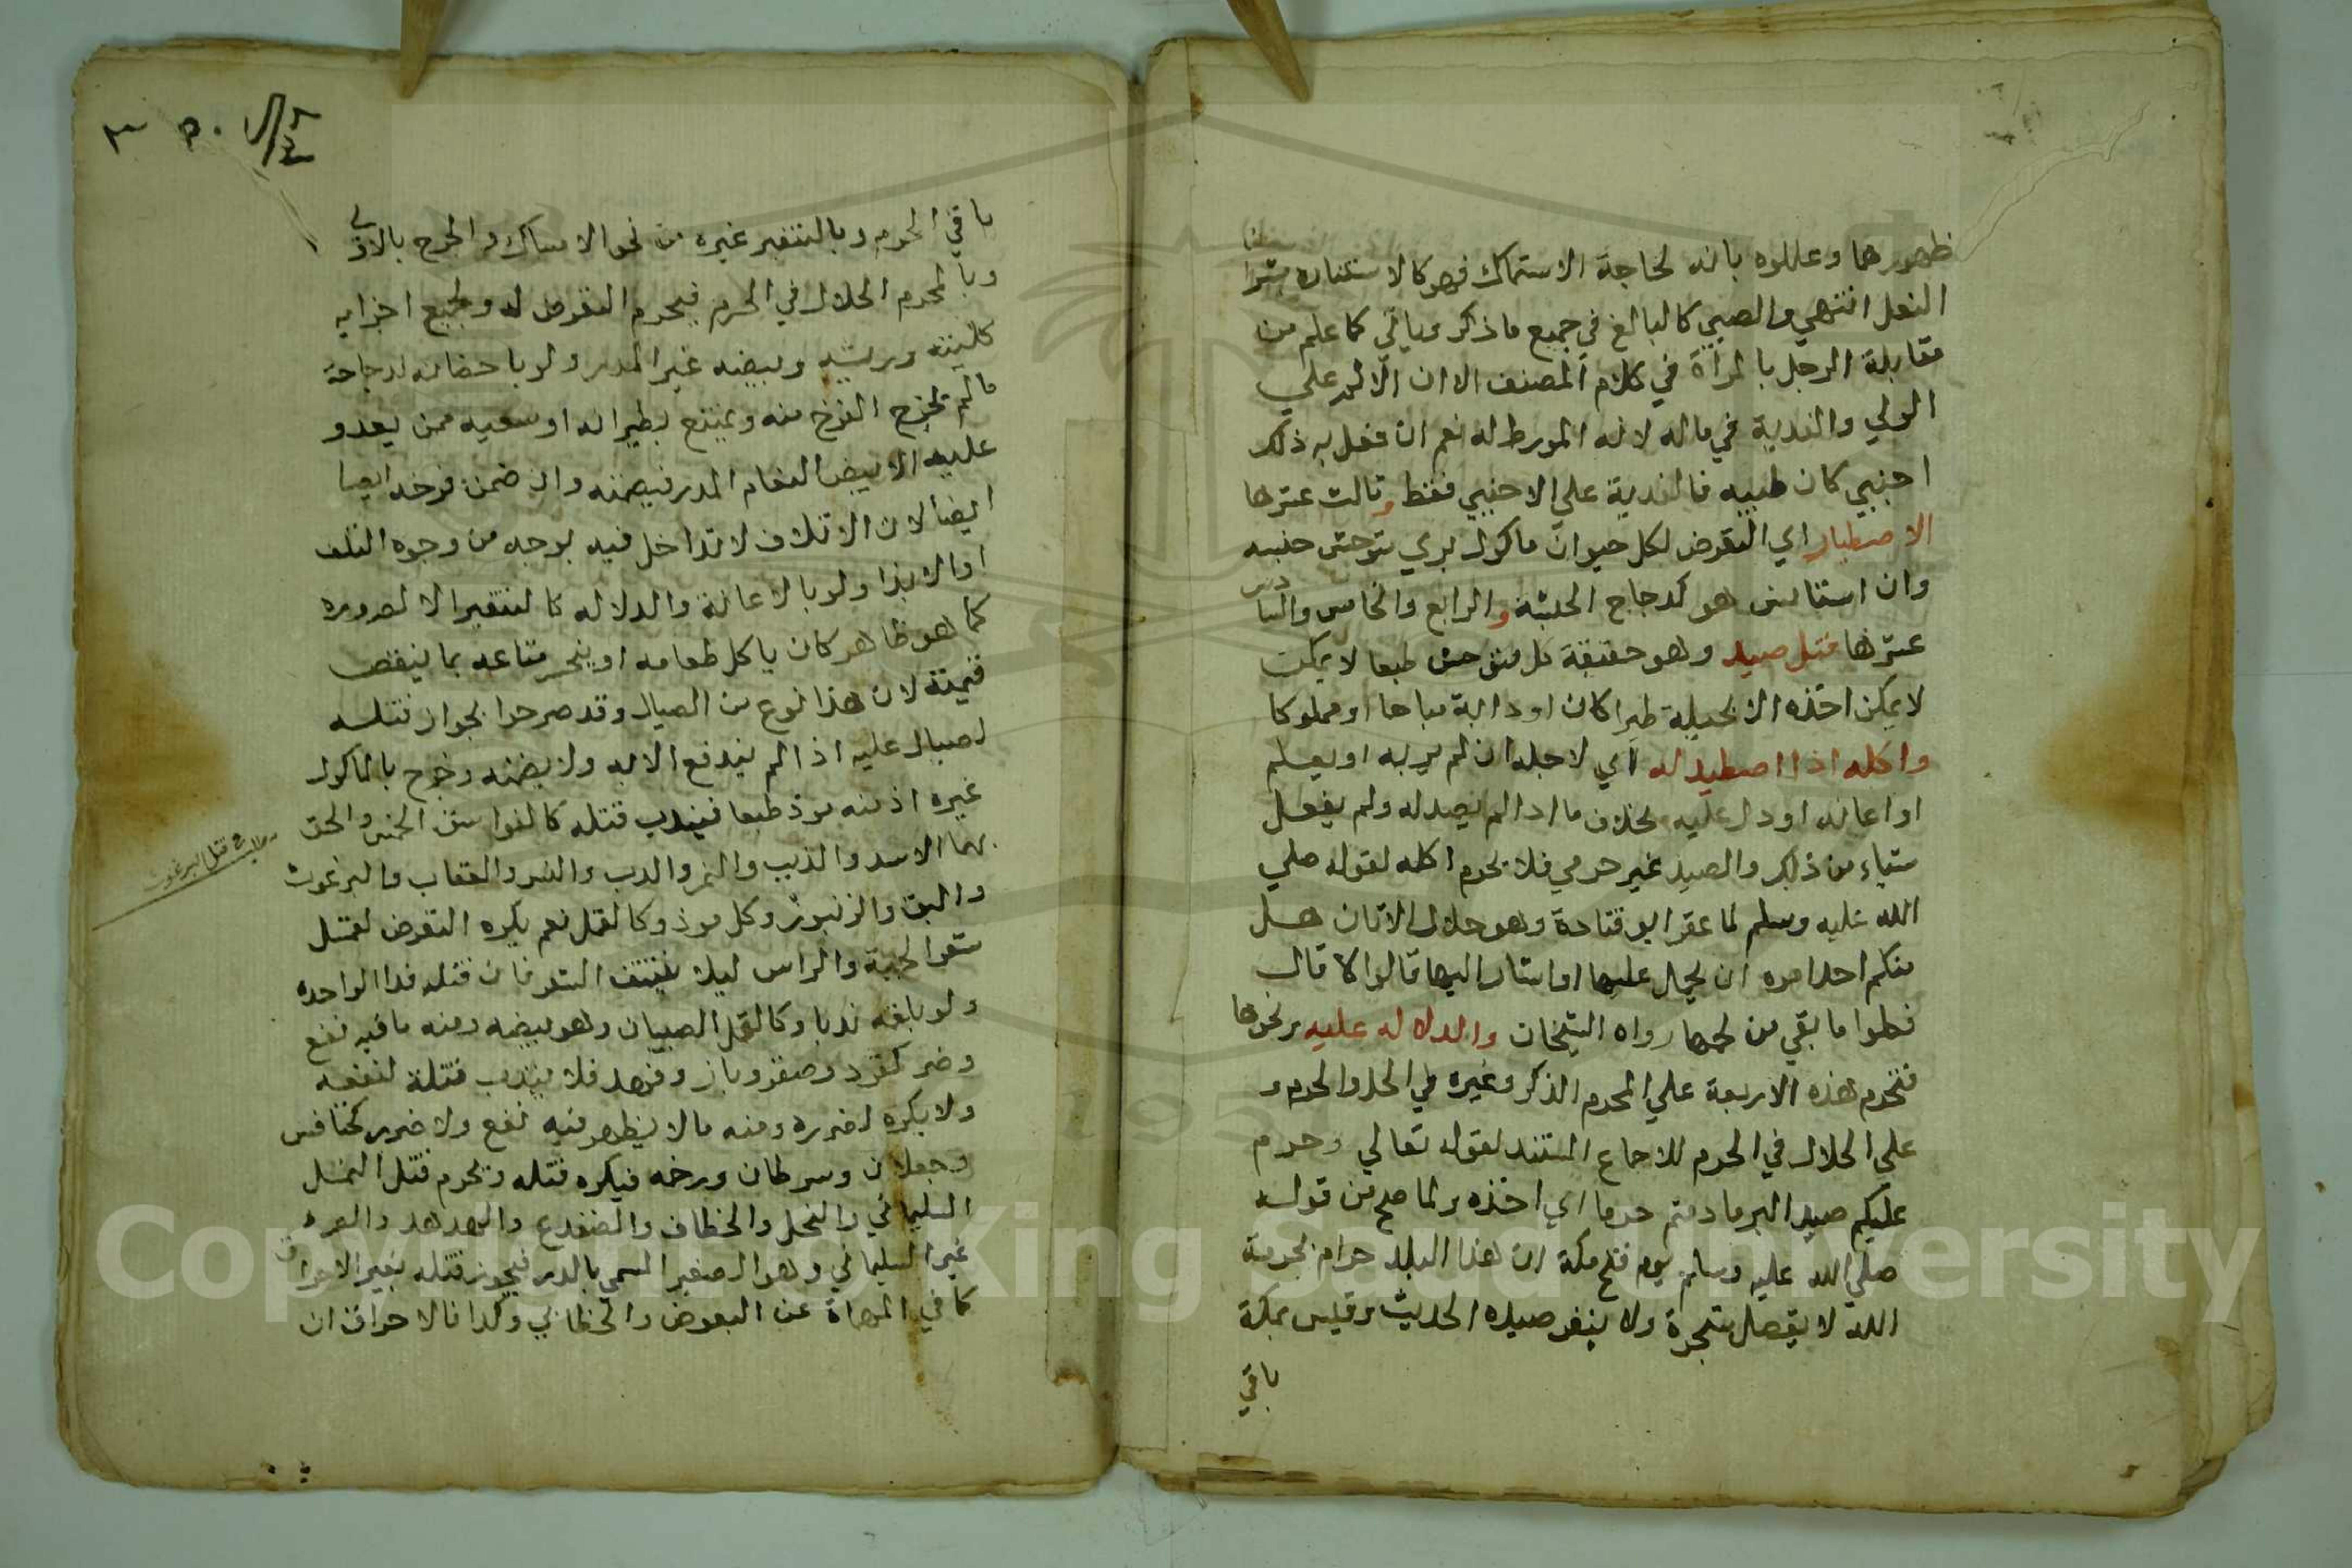 ظهورهما وعللوه بانه لحاجة الاستمساك فهو كالاستثناره بشرا
النعل انتهي والصبي كالبالغ في جميع ما ذكر وياتي كما علم من
مقابلة الرجل بالمرأة في كلام المصنف الا ان الاثم علي
الولي والفدية في ماله لانه المورط له نعم ان فعل به ذلك
اجنبي كان طيبه فالفدية علي الاجنبي فقط وثالث عشرها
الاصطياد اي التعرض لكل حيوان ماكول بري متوحش جنسه
وان استانس هو كدجاج الحبشة والرابع والخامس والسادس
عشرها قتل صيد وهو حقيقة كل متوحش طبعا لا يمكن
لا يمكن اخذه الا بحيلة طيرا كان او دابة مباحا او مملوكا
واكله اذا اصطيد له اي لاجله ان لم يرد به او يعلم
او اعانه او دل عليه بخلاف ما اذا لم يصد له ولم يفعل
شياء من ذلك والصيد غير حرمي فلا يحرم اكله لقوله صلي
الله عليه وسلم لما عقر ابو قتادة وهو حلال الاتان هل
منكم احدا مره ان يحمل عليها او اشار اليها قالوا لا قال
فكلوا ما بقي من لحمها رواه الشيخان والدلاله عليه ونحوها
فتحرم هذه الاربعة علي المحرم الذكر وغيره في الحل والحرم و
علي الحلال في الحرم للاجماع المستند لقوله تعالي وحرم
عليكم صيد البر ما دمتم حرما اي اخذه ولما صح من قوله
صلي الله عليه وسلم يوم فتح مكة ان هذا البلد حرام بحرمة
الله لا يعضد شجرة ولا ينفر صيده الحديث وقيس بمكة
باقي
باقي الحرم وبالتنفير غيره من نحو الامساك والجرح بالاولي
وبالمحرم الحلال في الحرم فيحرم التعرض له ولجميع اجزايه
كلبنه وريشه وبيضه غير المذر ولو باحضانه لدجاجة
ما لم يخرج الفرخ منه ويمتنع بطيرانه او سعيه ممن يعدو
عليه الا بيض النعام المذر فيضمنه وان ضمن فرخه ايضا
ايضا لان الاتلاف لا تداخل فيه بوجه من وجوه التلف
او الايذا ولو بالاعانة والدلاله كالتنفير الا لضروره
كما هو ظاهر كان ياكل طعامه او ينجس متاعه بما ينقص
قيمته لان هذا نوع من الصيال وقد صرحوا بجواز قتله
لصياله عليه اذا لم يندفع الا به ولا يضمنه وخرج بالماكول
غيره اذ منه موذ طبعا فيندب قتله كالفواسق الخمس والحق
بهما الاسد والذيب والنمر والدب والنسر والعقاب والبرغوث
والبق والزنبور وكل موذ وكالقمل نعم يكره التعرض لقمل
شعر اللحية والراس ليلا ينتتف الشعر فان قتله فدا الواحدة
ولو بلقمه ندبا وكالقمل الصيبان وهو بيضه ومنه ما فيه نفع
وضر كقرد وصقر وباز وفهد فلا يندب قتلة لنفعه
ولا يكره لضرره ومنه ما لا يظهر فيه نفع ولا ضرر كخنافس
وجعلان وسرطان ورخمه فيكره قتله ويحرم قتل النمل
السليماني والنحل والخطاف والضفدع والهدهد والصرد
غير السليماني وهو الصغير المسمي بالذر فيجوز قتله بغير الاحراق
كما في المهماة عن البغوض والخطابي وكذا فالاحراق ان
قتل البرغوث
Copyright © King Saud University
195